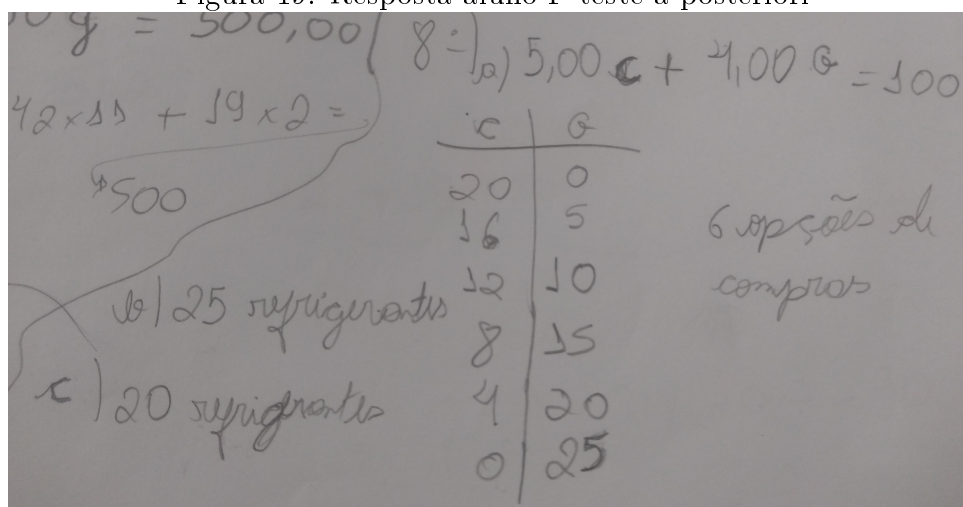 Figura 19: Resposta aluno F teste a posteriori
0 y = 500,00
42x11 + 19x2 =
$500
8-) a) 5,00 C + 4,00 G = 100
C | G
20 | 0
16 | 5
12 | 10
8 | 15
4 | 20
0 | 25
6 opções de
compras
b) 25 refrigerantes
c) 20 refrigerantes